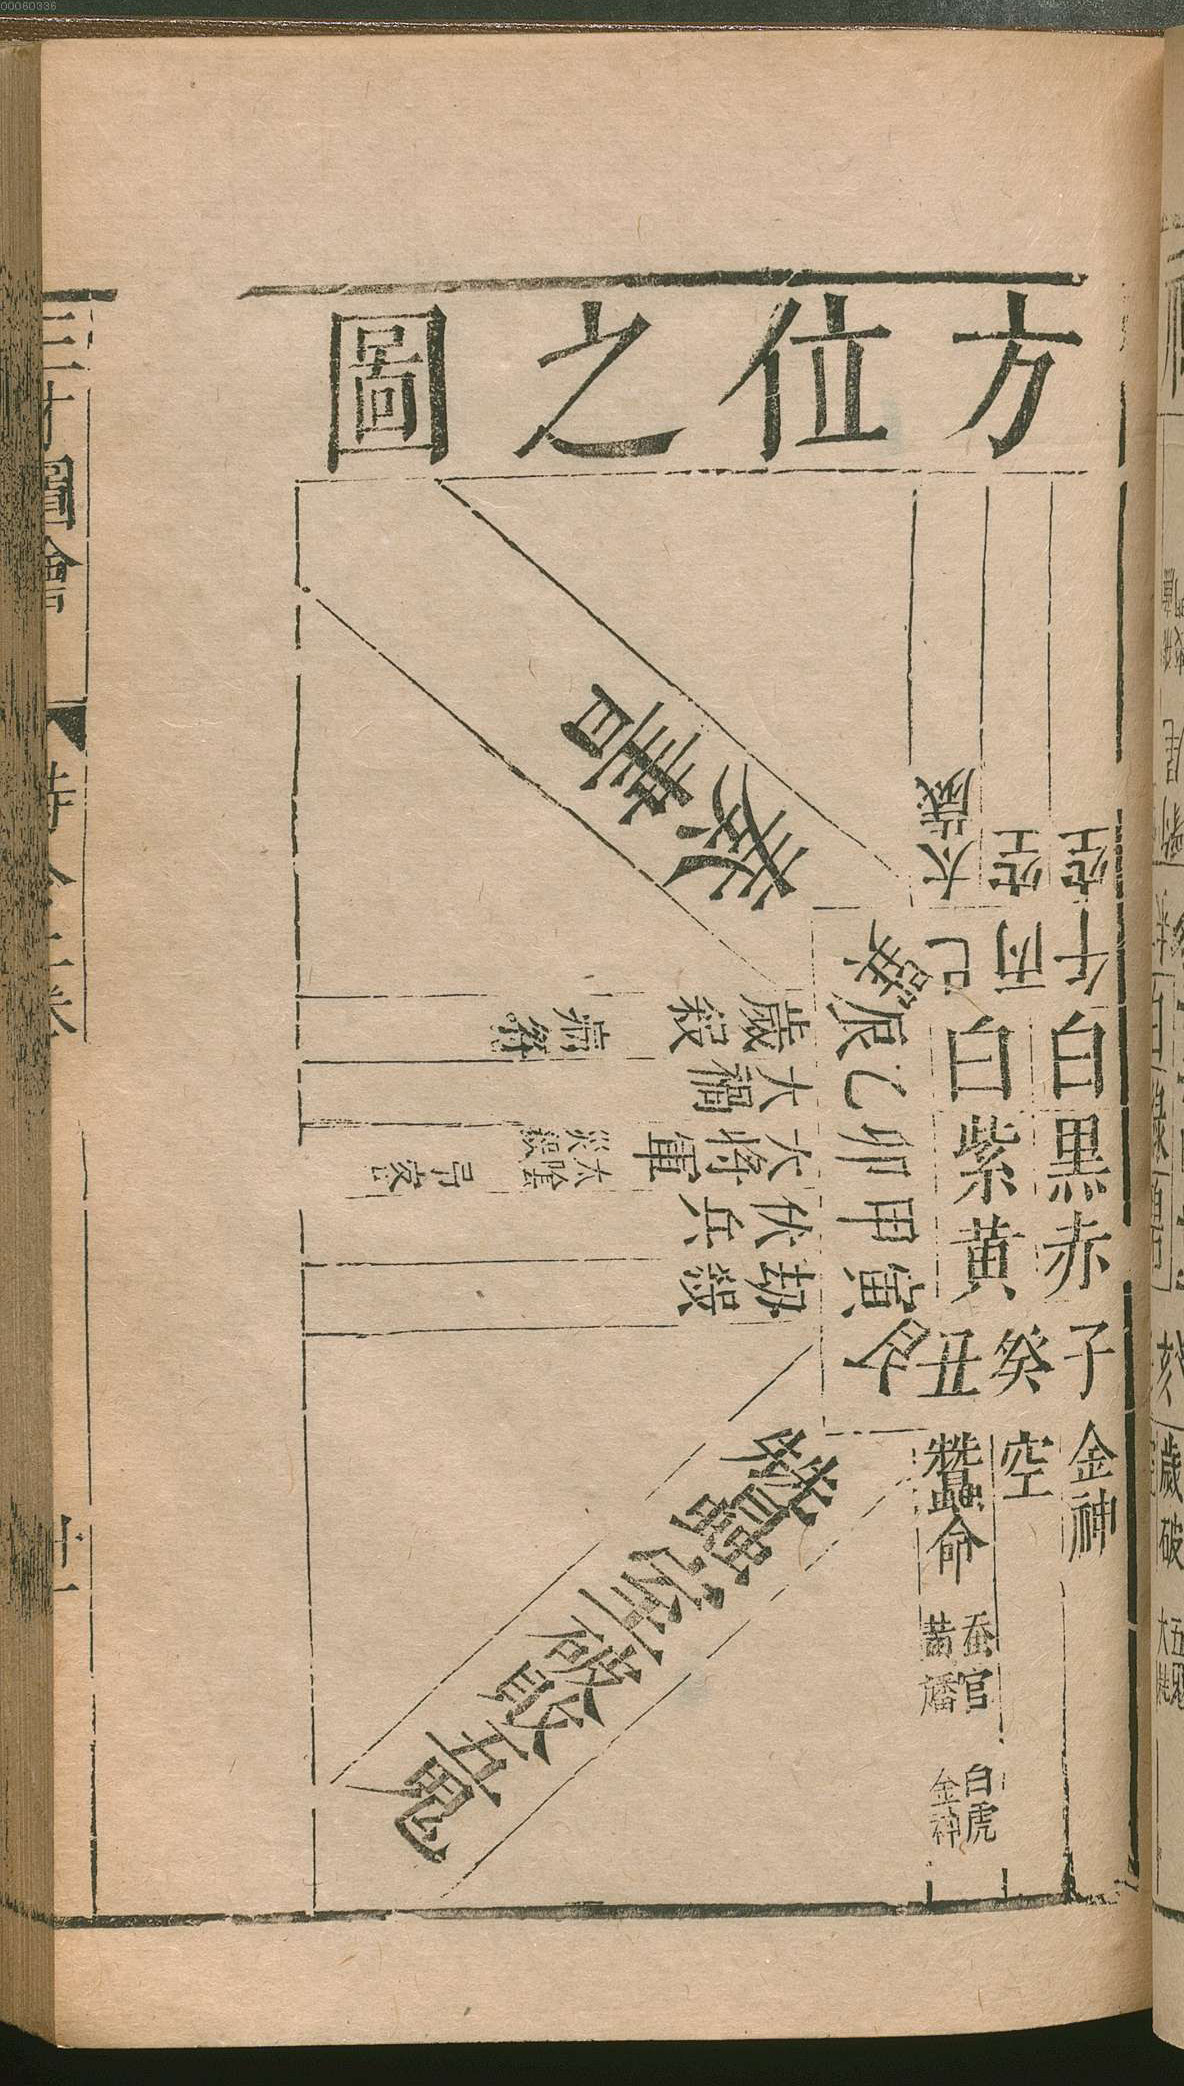 00060336
方位之圖
奏書
太歲
空
空
巽巳丙午
辰乙卯甲寅
白紫黃
白黑赤
艮丑癸子
歲殺
病符
大禍
大將軍
太陰
災殺
弔客
伏兵
劫殺
金神
空
蠶命
蚕官
黃旛
白虎
金神
蠶室
五鬼
三才圖會
時令二卷
十一
歲破